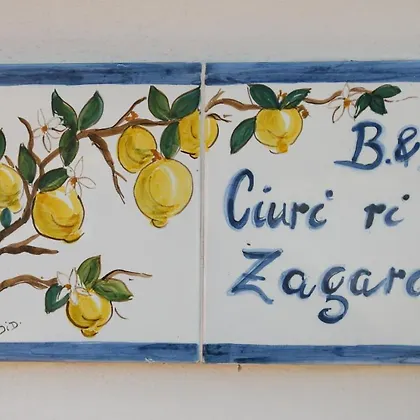 B.&
Ciuri ri
Zagar